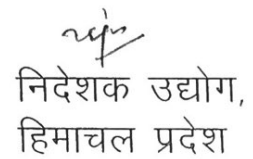 निदेशक उद्योग,
हिमाचल प्रदेश